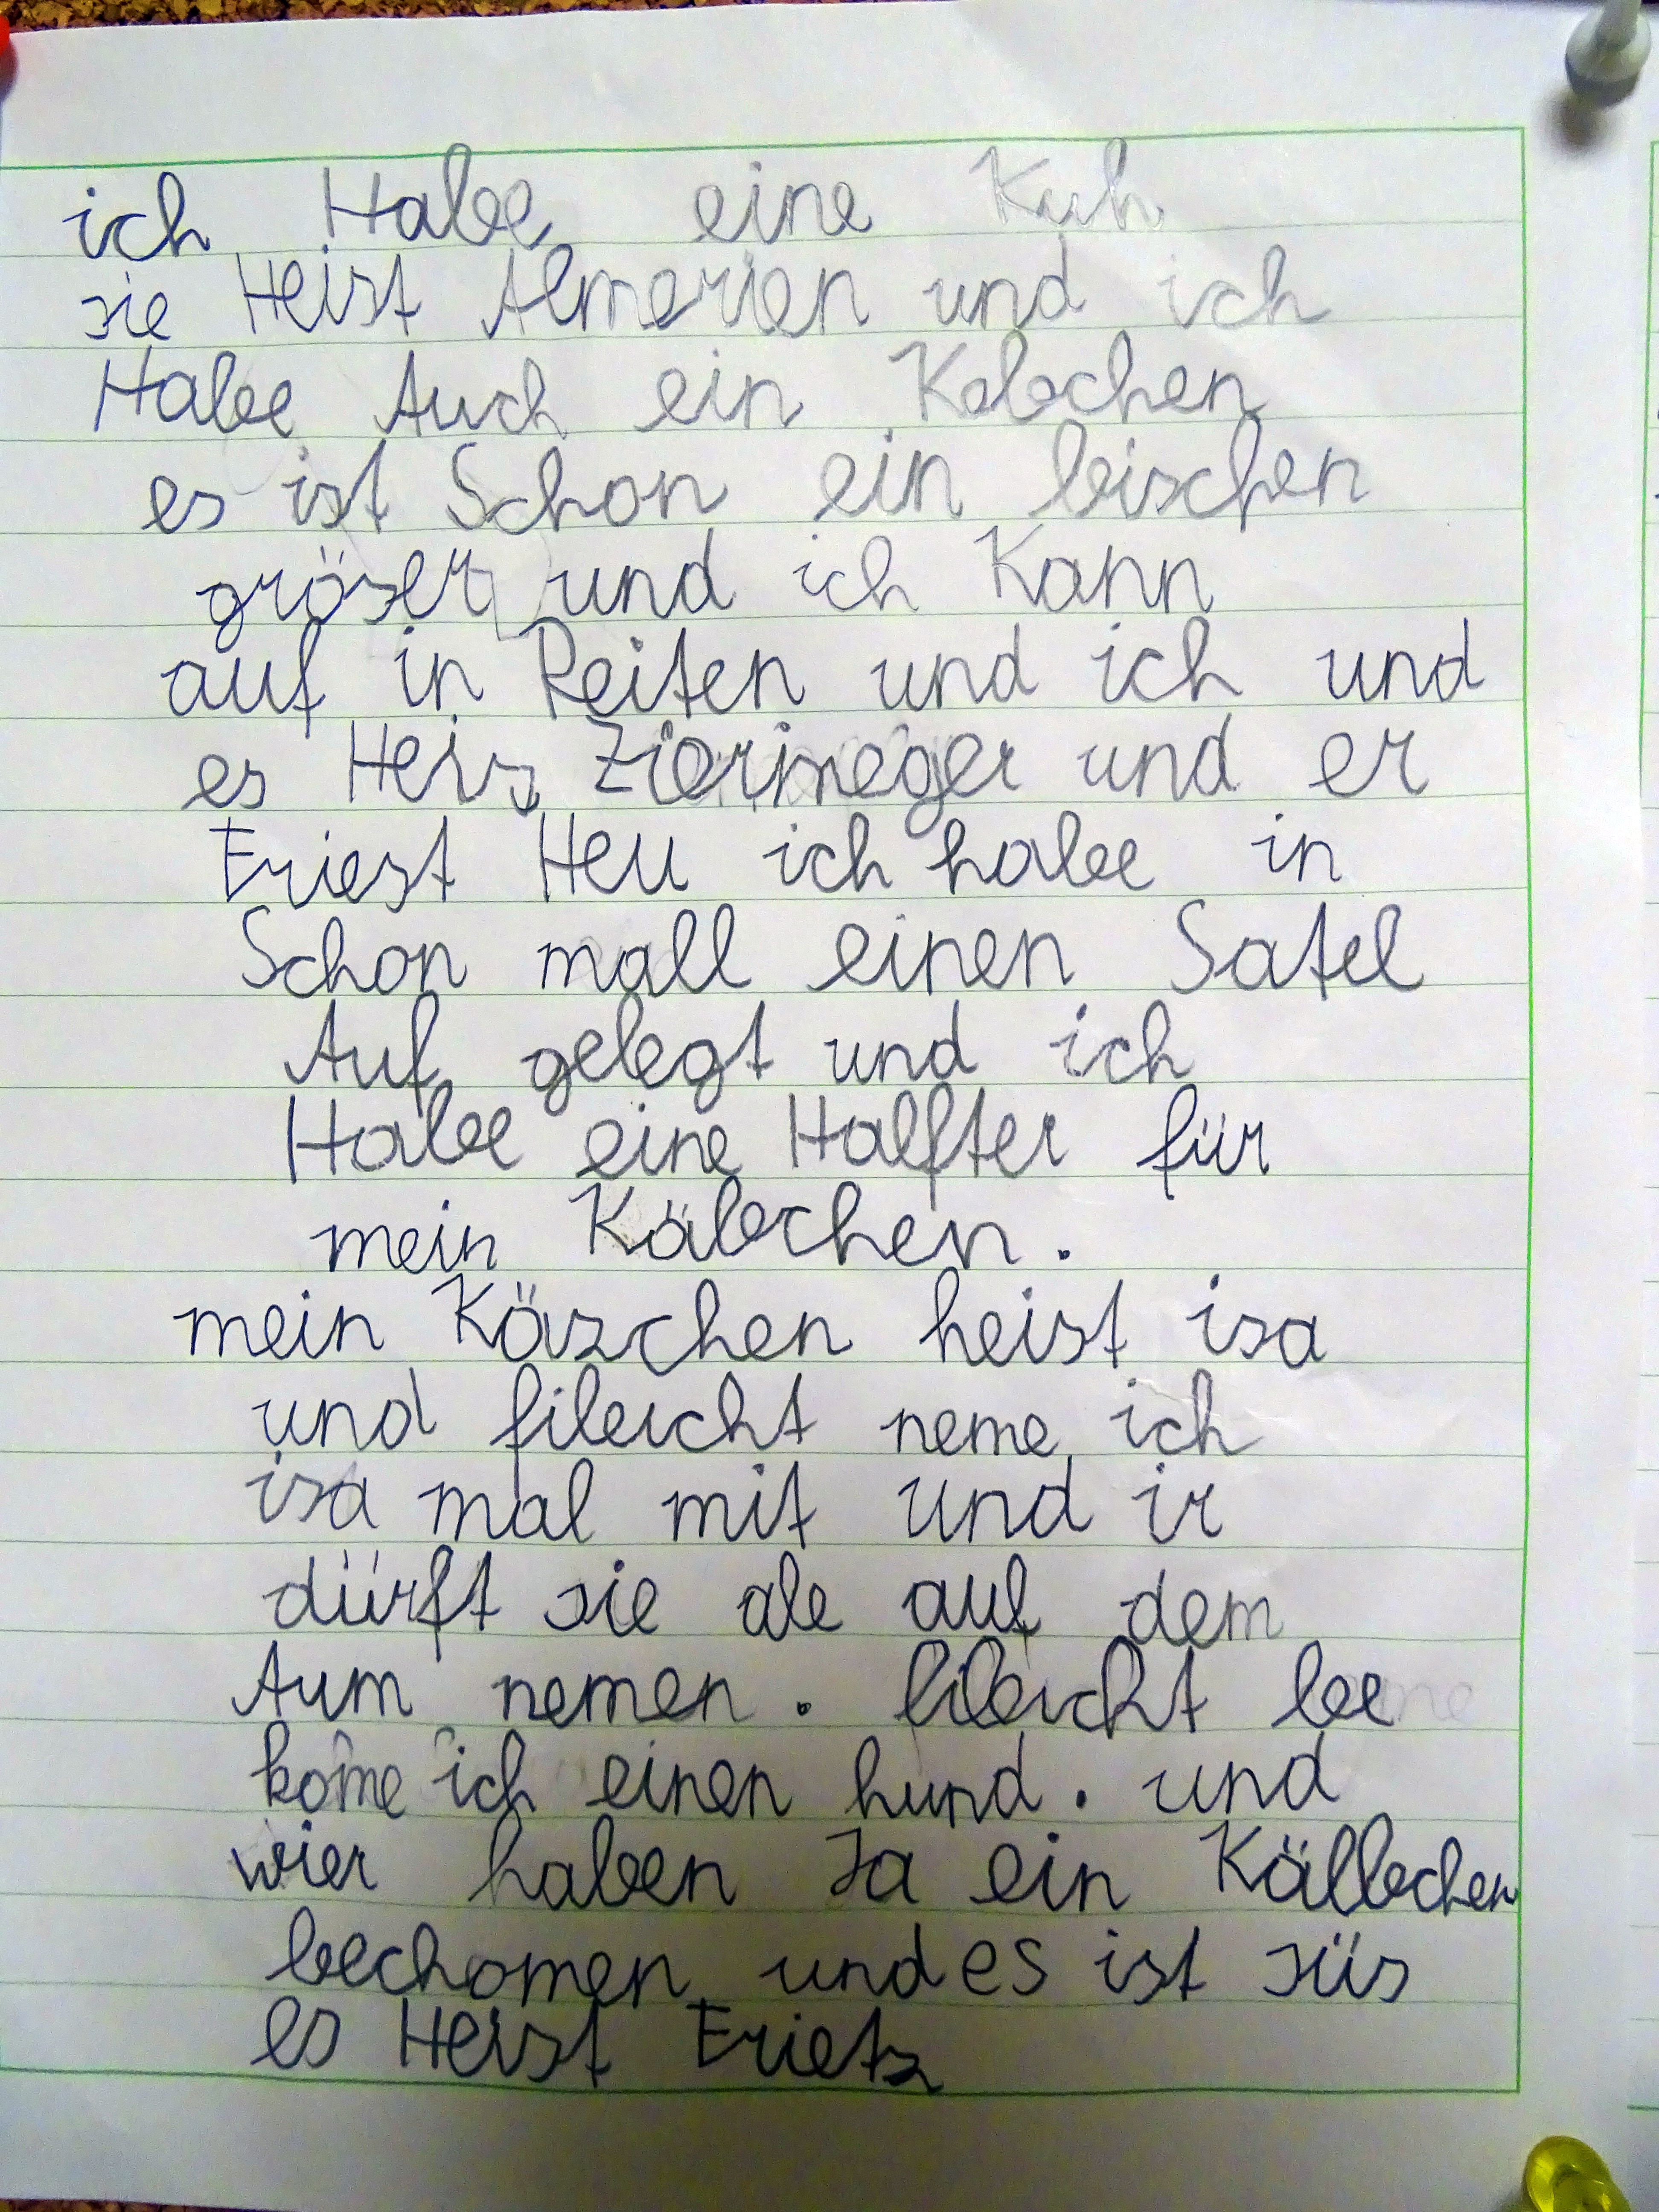 ich Habe eine Kuh
sie Heist Almerien und ich
Habe Auch ein Kelbchen
es ist Schon ein bischen
gröser und ich Kann
auf in Reiten und ich und
es Heis Ziermeger und er
Friest Heu ich habe in
Schon mall einen Satel
Auf gelegt und ich
Habe eine Halfter für
mein Käbchen.
mein Käzchen heist isa
und fileicht neme ich
isa mal mit und ir
dürft sie ale auf dem
Aum nemen. fileicht be
kome ich einen hund. und
wier haben Ja ein Källbchen
bechomen und es ist süs
es Heist Frietz